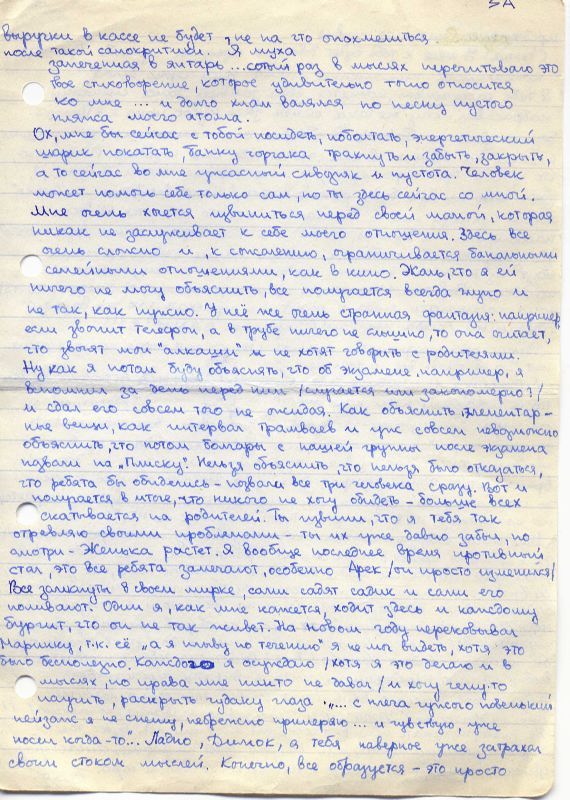 3А
выручки в кассе не будет, не на что опохмелиться
после такой самокритики. Я муха
запеченная в янтарь ... сотый раз в мыслях перечитываю это
твое стихотворение, которое удивительно точно относится
ко мне ... и долго хлам валялся по песку пустого
пляжа моего атолла.
Ох, мне бы сейчас с тобой посидеть, поболтать, энергетический
шарик покатать, банку чорзака трахнуть и забыть, закрыть,
а то сейчас во мне ужасный сквозняк и пустота. Человек
может помочь себе только сам, но ты здесь сейчас со мной.
Мне очень хочется извиниться перед своей мамой, которая
никак не заслуживает к себе моего отношения. Здесь все
очень сложно и, к сожалению, ограничивается банальными
семейными отношениями, как в кино. Жаль, что я ей
ничего не могу объяснить, все получается всегда глупо и
не так, как нужно. У неё же очень странная фантазия: например,
если звонит телефон, а в трубе ничего не слышно, то она считает,
что звонят мои "алкаши" и не хотят говорить с родителями.
Ну как я потом буду объяснять, что об экзамене, например, я
вспомнил за день перед ним /случается или закономерно?/
и сдал его совсем того не ожидая. Как объяснить элементар-
ные вещи, как интервал трамваев и уж совсем невозможно
объяснить, что потом болгары с нашей группы после экзамена
позвали на „Плиску". Нельзя объяснить, что нельзя было отказаться,
что ребята бы обиделись - позвали все три человека сразу. Вот и
получается в итоге, что никого не хочу обидеть - больше всех
скатывается на родителей. Ты извини, что я тебя так
отравляю своими проблемами - ты их уже давно забыл, но
смотри - Женька растет. Я вообще последнее время противный
стал, это все ребята замечают, особенно Арек /он просто изменился/
Все замкнуты в своем мирке, сами садят садик и сами его
поливают. Один я, как мне кажется, ходит здесь и каждому
бурчит, что он не так живет. На новом году перековывал
Маринку, т.к. её „а я плыву по течению" я не мог видеть, хотя это
было бесполезно. Каждого я осуждаю /хотя я это делаю и в
мыслях, но права мне никто не давал/ и хочу чему-то
научить, раскрыть чудаку глаза. „... с плеча чужого новенький
пейзаж я не спешу, небрежно примеряю ... и чувствую, уже
носил когда-то"... Ладно, Димок, я тебя наверное уже затрахал
своим стоком мыслей. Конечно, все образуется - это просто